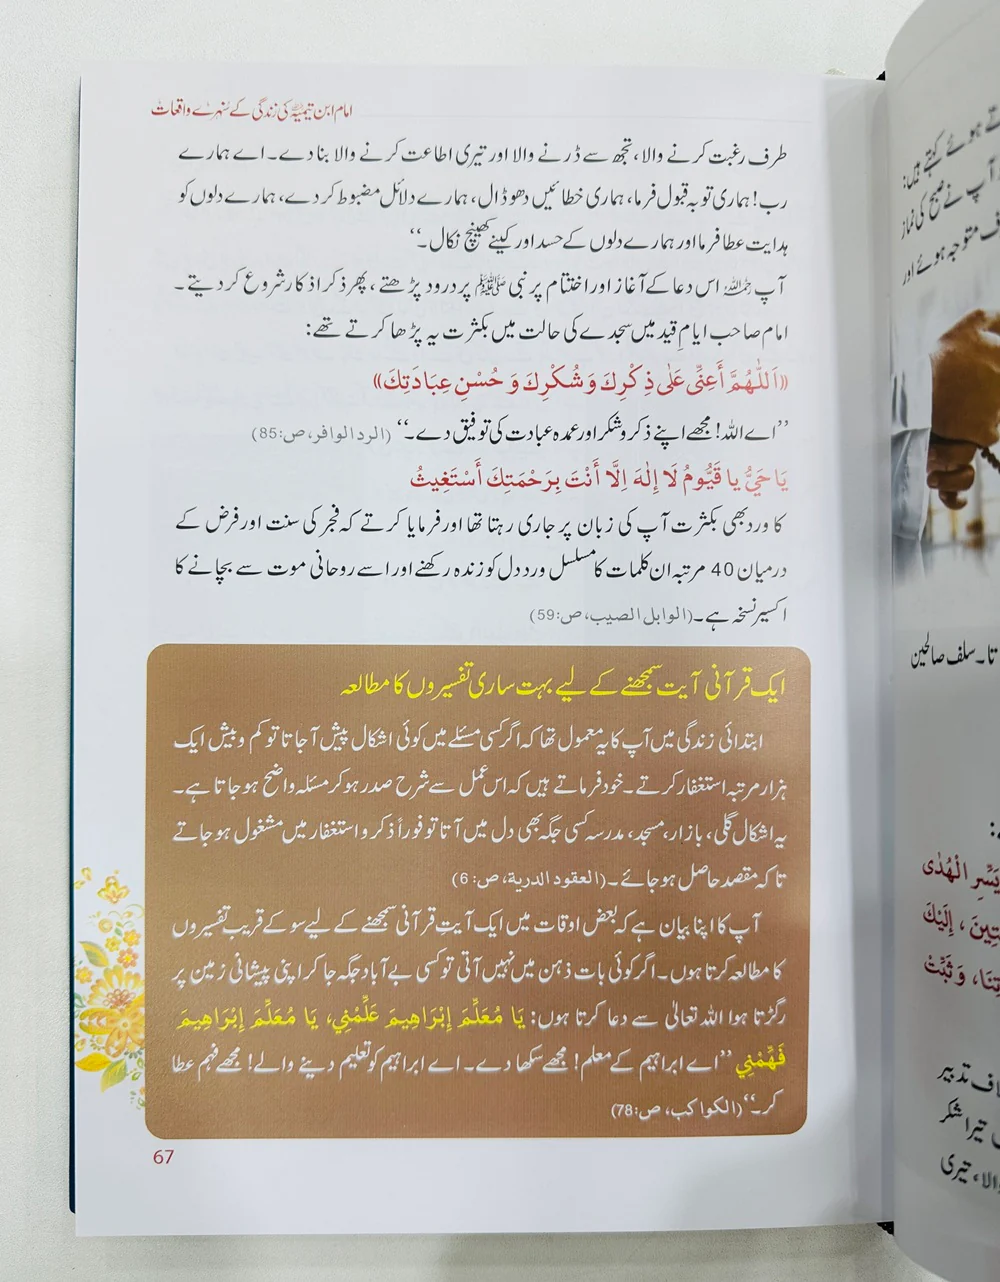 امام ابن تیمیہ رحمہ اللہ کی زندگی کے سنہرے واقعات
طرف رغبت کرنے والا، تجھ سے ڈرنے والا اور تیری اطاعت کرنے والا بنا دے۔ اے ہمارے
رب! ہماری توبہ قبول فرما، ہماری خطائیں دھو ڈال، ہمارے دلائل مضبوط کر دے، ہمارے دلوں کو
ہدایت عطا فرما اور ہمارے دلوں کے حسد اور کینے کھینچ نکال۔‘‘
آپ رحمہ اللہ اس دعا کے آغاز اور اختتام پر نبی ﷺ پر درود پڑھتے، پھر ذکر اذکار شروع کر دیتے۔
امام صاحب ایامِ قید میں سجدے کی حالت میں بکثرت یہ پڑھا کرتے تھے:
«اَللّٰهُمَّ أَعِنِّي عَلٰى ذِكْرِكَ وَشُكْرِكَ وَ حُسْنِ عِبَادَتِكَ»
’’اے اللہ! مجھے اپنے ذکر و شکر اور عمدہ عبادت کی توفیق دے۔‘‘ (الرد الوافر، ص:85)
يَا حَيُّ يا قَيُّومُ لَا إِلٰهَ اِلَّا أَنْتَ بِرَحْمَتِكَ أَسْتَغِيثُ
کا ورد بھی بکثرت آپ کی زبان پر جاری رہتا تھا اور فرمایا کرتے کہ فجر کی سنت اور فرض کے
درمیان 40 مرتبہ ان کلمات کا مسلسل ورد دل کو زندہ رکھنے اور اسے روحانی موت سے بچانے کا
اکسیر نسخہ ہے۔ (الوابل الصیب، ص:59)
ایک قرآنی آیت سمجھنے کے لیے بہت ساری تفسیروں کا مطالعہ
ابتدائی زندگی میں آپ کا یہ معمول تھا کہ اگر کسی مسئلے میں کوئی اشکال پیش آ جاتا تو کم و بیش ایک
ہزار مرتبہ استغفار کرتے۔ خود فرماتے ہیں کہ اس عمل سے شرح صدر ہو کر مسئلہ واضح ہو جاتا ہے۔
یہ اشکال گلی، بازار، مسجد، مدرسہ کسی جگہ بھی دل میں آتا تو فوراً ذکر و استغفار میں مشغول ہو جاتے
تا کہ مقصد حاصل ہو جائے۔ (العقود الدرية، ص: 6)
آپ کا اپنا بیان ہے کہ بعض اوقات میں ایک آیتِ قرآنی سمجھنے کے لیے سو کے قریب تفسیروں
کا مطالعہ کرتا ہوں۔ اگر کوئی بات ذہن میں نہیں آتی تو کسی بے آباد جگہ جا کر اپنی پیشانی زمین پر
رگڑتا ہوا اللہ تعالیٰ سے دعا کرتا ہوں: يَا مُعَلِّمَ إِبْرَاهِيمَ عَلِّمْنِي، يَا مُعَلِّمَ إِبْرَاهِيمَ
فَهِّمْنِي ’’اے ابراہیم کے معلم! مجھے سکھا دے۔ اے ابراہیم کو تعلیم دینے والے! مجھے فہم عطا
کر۔‘‘ (الكواكب، ص:78)
67
تے ہوئے کہتے ہیں:
آپ نے صبح کی نماز
ف متوجہ ہوئے اور
تا۔ سلف صالحین
يَسِّرِ الْهُدٰى
إِلَيْكَ
وَثَبِّتْ
تدبیر
تیرا شکر
والا، تیری